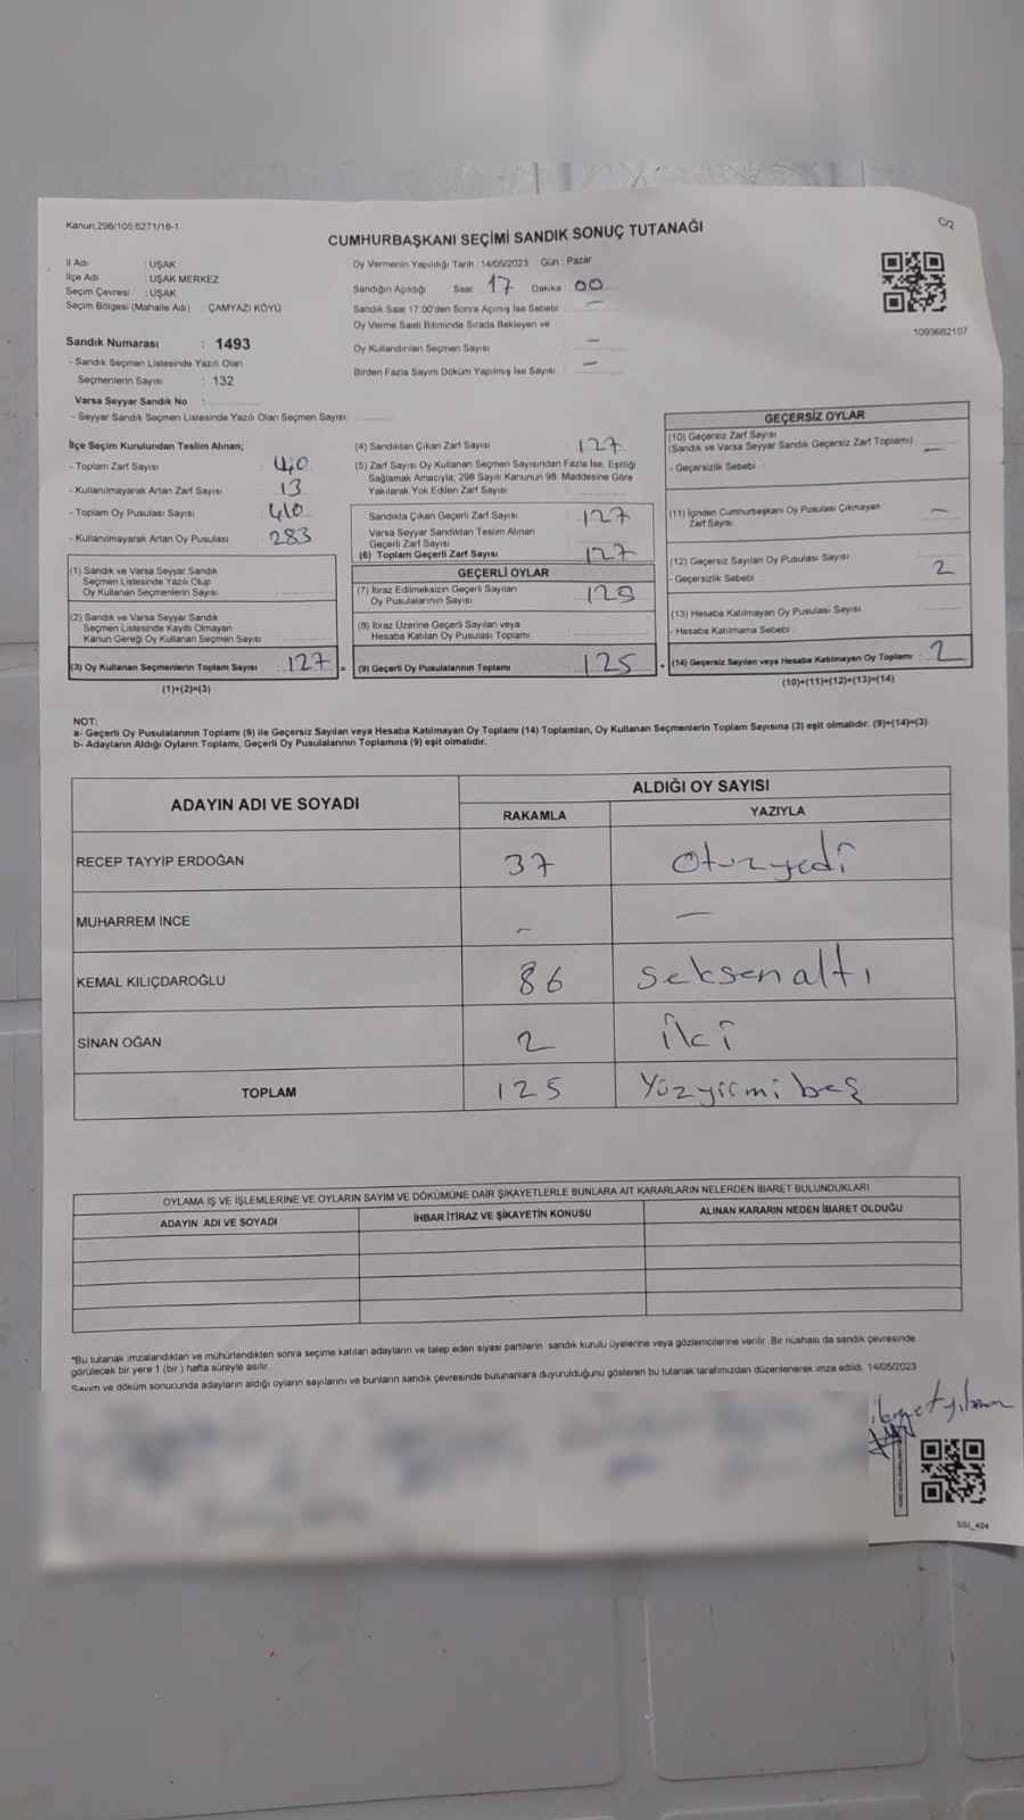 Kanun,298/105;6271/18-1
C/2
CUMHURBAŞKANI SEÇİMİ SANDIK SONUÇ TUTANAĞI
İl Adı : UŞAK
İlçe Adı : UŞAK MERKEZ
Seçim Çevresi : UŞAK
Seçim Bölgesi (Mahalle Adı) : ÇAMYAZI KÖYÜ
Oy Vermenin Yapıldığı Tarih :14/05/2023 Gün : Pazar
Sandığın Açıldığı Saat 17 Dakika 00
Sandık Saat 17:00'den Sonra Açılmış İse Sebebi : -
Oy Verme Saati Bitiminde Sırada Bekleyen ve
Oy Kullandırılan Seçmen Sayısı -
Birden Fazla Sayım Döküm Yapılmış İse Sayısı : -
1093682107
Sandık Numarası : 1493
- Sandık Seçmen Listesinde Yazılı Olan
Seçmenlerin Sayısı : 132
Varsa Seyyar Sandık No :
- Seyyar Sandık Seçmen Listesinde Yazılı Olan Seçmen Sayısı:
İlçe Seçim Kurulundan Teslim Alınan;
- Toplam Zarf Sayısı 410
- Kullanılmayarak Artan Zarf Sayısı 13
- Toplam Oy Pusulası Sayısı 410
- Kullanılmayarak Artan Oy Pusulası 283
(1) Sandık ve Varsa Seyyar Sandık
Seçmen Listesinde Yazılı Olup
Oy Kullanan Seçmenlerin Sayısı
(2) Sandık ve Varsa Seyyar Sandık
Seçmen Listesinde Kayıtlı Olmayan
Kanun Gereği Oy Kullanan Seçmen Sayısı
(3) Oy Kullanan Seçmenlerin Toplam Sayısı 127
(1)+(2)=(3)
(4) Sandıktan Çıkan Zarf Sayısı 127
(5) Zarf Sayısı Oy Kullanan Seçmen Sayısından Fazla İse, Eşitliği
Sağlamak Amacıyla; 298 Sayılı Kanunun 98. Maddesine Göre
Yakılarak Yok Edilen Zarf Sayısı
Sandıkta Çıkan Geçerli Zarf Sayısı 127
Varsa Seyyar Sandıktan Teslim Alınan
Geçerli Zarf Sayısı
(6) Toplam Geçerli Zarf Sayısı 127
GEÇERLİ OYLAR
(7) İtiraz Edilmeksizin Geçerli Sayılan
Oy Pusulalarının Sayısı 125
(8) İtiraz Üzerine Geçerli Sayılan veya
Hesaba Katılan Oy Pusulası Toplamı
= (9) Geçerli Oy Pusulalarının Toplamı 125
GEÇERSİZ OYLAR
(10) Geçersiz Zarf Sayısı
(Sandık ve Varsa Seyyar Sandık Geçersiz Zarf Toplamı) -
- Geçersizlik Sebebi :
(11) İçinden Cumhurbaşkanı Oy Pusulası Çıkmayan
Zarf Sayısı -
(12) Geçersiz Sayılan Oy Pusulası Sayısı 2
- Geçersizlik Sebebi
(13) Hesaba Katılmayan Oy Pusulası Sayısı
- Hesaba Katılmama Sebebi :
+ (14) Geçersiz Sayılan veya Hesaba Katılmayan Oy Toplamı 2
(10)+(11)+(12)+(13)=(14)
NOT:
a- Geçerli Oy Pusulalarının Toplamı (9) ile Geçersiz Sayılan veya Hesaba Katılmayan Oy Toplamı (14) Toplamları, Oy Kullanan Seçmenlerin Toplam Sayısına (3) eşit olmalıdır. (9)+(14)=(3)
b- Adayların Aldığı Oyların Toplamı, Geçerli Oy Pusulalarının Toplamına (9) eşit olmalıdır.
ADAYIN ADI VE SOYADI
ALDIĞI OY SAYISI
RAKAMLA YAZIYLA
RECEP TAYYİP ERDOĞAN 37 otuzyedi
MUHARREM İNCE - -
KEMAL KILIÇDAROĞLU 86 seksenaltı
SİNAN OĞAN 2 iki
TOPLAM 125 Yüzyirmi beş
OYLAMA İŞ VE İŞLEMLERİNE VE OYLARIN SAYIM VE DÖKÜMÜNE DAİR ŞİKAYETLERLE BUNLARA AİT KARARLARIN NELERDEN İBARET BULUNDUKLARI
ADAYIN ADI VE SOYADI İHBAR İTİRAZ VE ŞİKAYETİN KONUSU ALINAN KARARIN NEDEN İBARET OLDUĞU
*Bu tutanak imzalandıktan ve mühürlendikten sonra seçime katılan adayların ve talep eden siyasi partilerin sandık kurulu üyelerine veya gözlemcilerine verilir. Bir nüshası da sandık çevresinde
görülecek bir yere 1 (bir) hafta süreyle asılır.
Sayım ve döküm sonucunda adayların aldığı oyların sayılarını ve bunların sandık çevresinde bulunanlara duyurulduğunu gösteren bu tutanak tarafımızdan düzenlenerek imza edildi. 14/05/2023